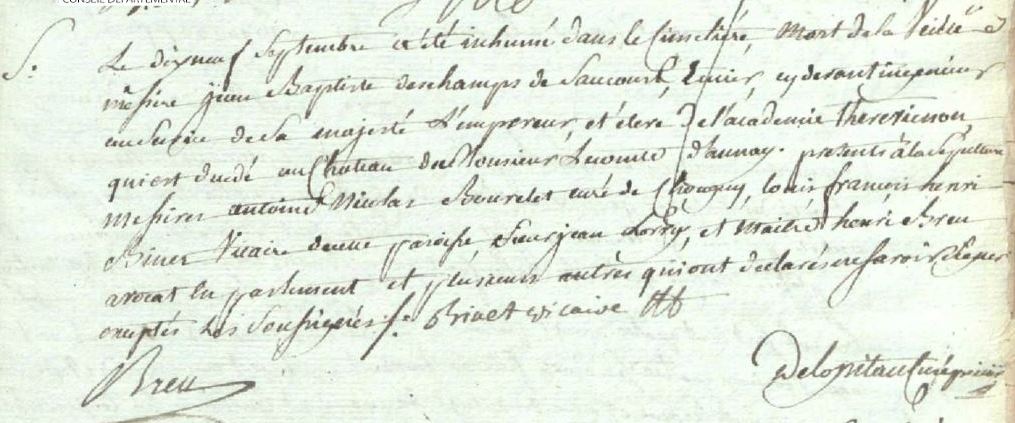 CONSEIL DEPARTEMENTAL
S. Le dix neuf Septembre a été inhumé dans le Cimetiére, Mort de la Veille
messire jean Baptiste deschamps de Saucourt, Ecuier, cy devant ingenieur
au Service de Sa majesté L'empereur, et élevé de l'académie theresienne
qui est décédé au Chateau de Monsieur Lecomte d'aunay. presents à la Sepulture
Messires antoine Nicolas Bourelet curé de Chougny, louis françois henri
Binet Vicaire de cette paroisse, Sieur jean Lorry, et Maitre henri Breu
avocat en parlement et plusieurs autres qui ont declarés ne savoir Signer
exceptés les Soussignés ./. Binet vicaire
Breu
Delopitau Curé